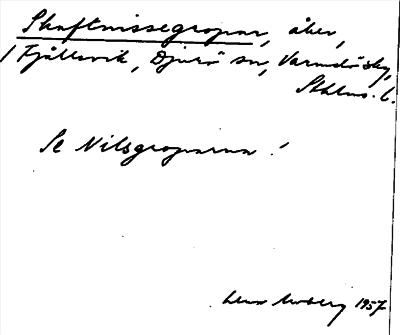 Skaftnissegropar, åker,
/ Fjällsvik, Djurö sn, Värmdö skg,
Sthlms. l.
Se Nilsgroparna !
1957